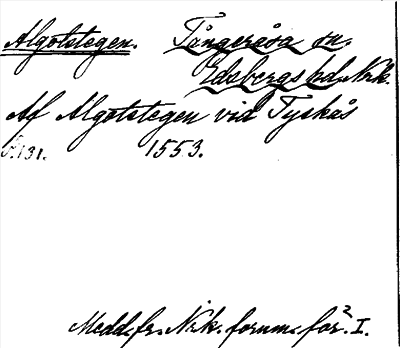 Algotstegen. Tångeråsa sn.
Edsbergs hd. Nrk.
Af Algotstegen vid Tyskås
s. 131. 1553.
Medd. fr. Nrk. fornm. för². I.